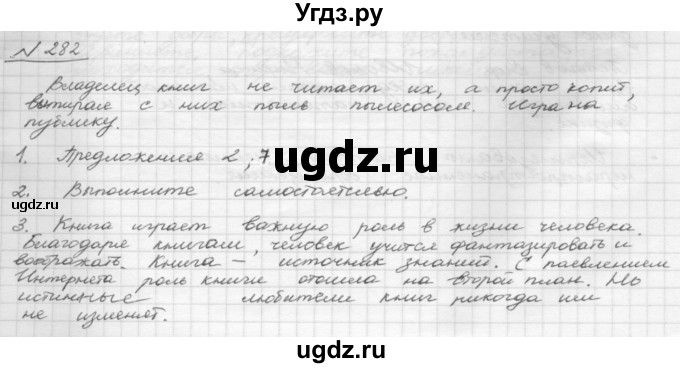 Угдз.ру
N 282
Владелец книг не читает их, а просто копит,
вытирая с них пыль пылесосом. Игра на
публику.
1. Предложение 2; 7
2. Выполните самостоятельно.
3. Книга играет важную роль в жизни человека.
Благодаря книгам, человек учится фантазировать и
воображать. Книга – источник знаний. С появлением
Интернета роль книги отошла на второй план. Но
истинные любители книг никогда им
не изменят.
ugdz.ru
©ugdz.ru
ugdz.ru
ugdz.ru